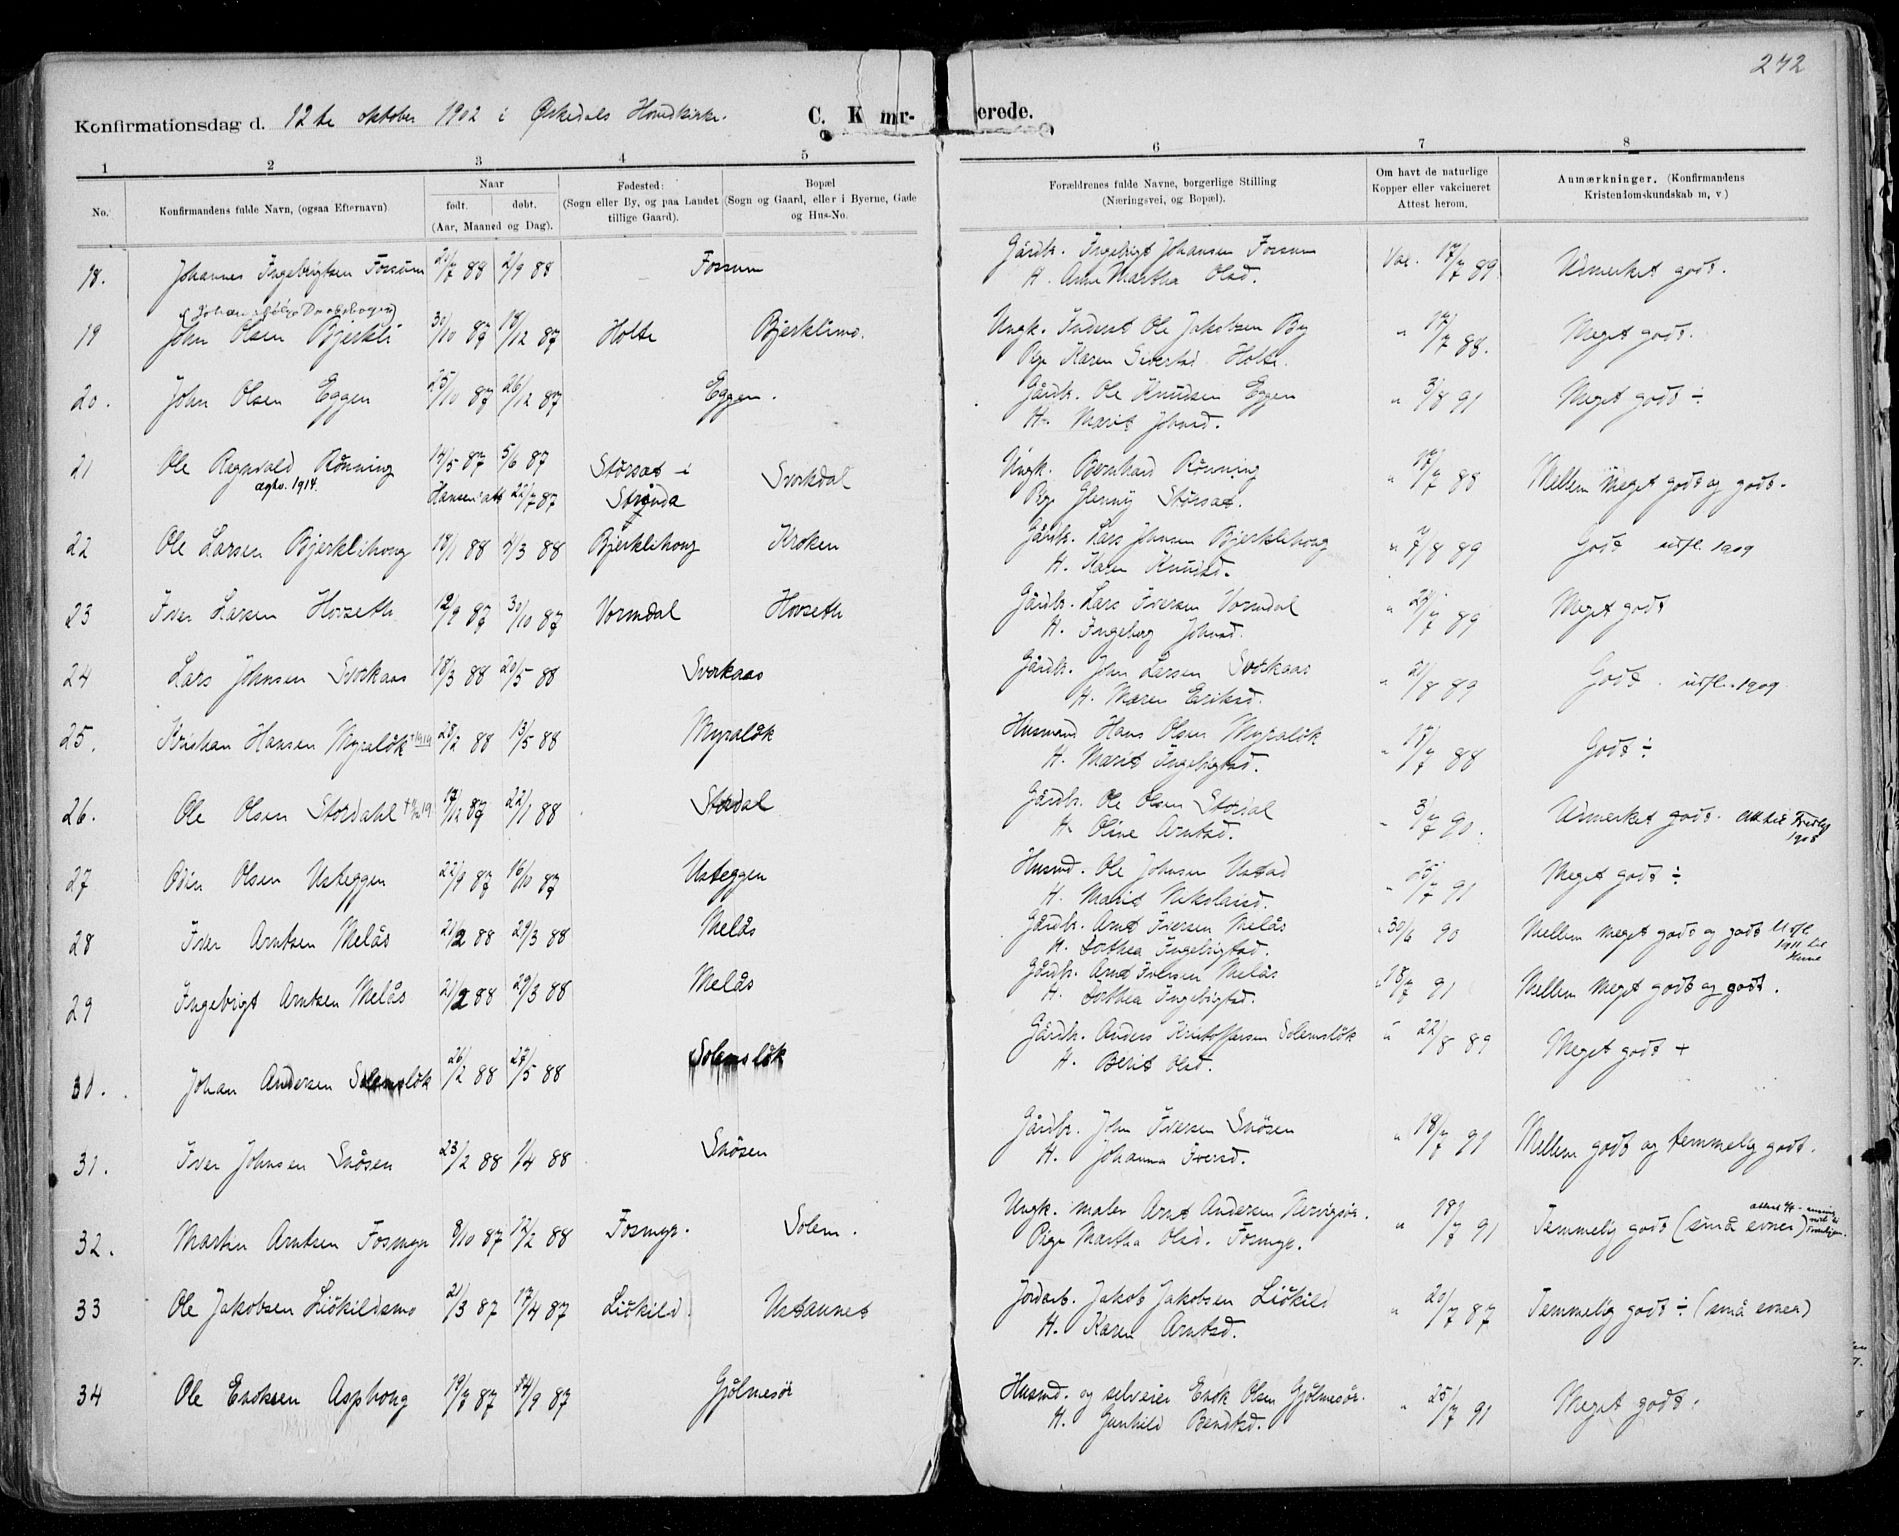 272
Konfirmationsdag d. 12te oktober 1902 i Orkedals Hovedkirke.
C. K mr- erede.
1 2 3 4 5 6 7 8
No.
Konfirmandens fulde Navn, (ogsaa Efternavn)
Naar
født. døbt.
(Aar, Maaned og Dag).
Fødested:
(Sogn eller By, og paa Landet
tillige Gaard).
Bopæl
(Sogn og Gaard, eller i Byerne, Gade
og Hus-No.
Forældrenes fulde Navne, borgerlige Stilling
(Næringsvei, og Bopæl).
Om havt de naturlige
Kopper eller vakcineret
Attest herom.
Anmærkninger. (Konfirmandens
Kristendomskundskab m, v.)
18. Johannes Ingebrigtsen Fossum 21/7 88 2/9 88 Fossum Gårdbr. Ingebrigt Johansen Fossum Vac. 17/7 89 Udmerket godt.
H. Anne Martha Olsd.
(Johan ifølge Daabsbogen)
19 John Olsen Bjerkli 30/10 87 18/12 87 Holte Bjerklimo. Ungk. Inderst Ole Jakobsen By " 17/7 88. Meget godt.
Pige Karen Sivertsd. Holte.
20. John Olsen Eggen 25/10 87 26/12 87 Eggen. Gårdb. Ole Knudsen Eggen " 3/8 91 Meget godt ÷
H. Marit Johnsd.
21 Ole Ragnvald Rønning 12/5 87 5/6 87 Størset i Svorkdal Ungk. Bernhard Rønning " 17/7 88 Mellem Meget godt og godt.
1914. 22/7 87 Strinda Pige Størset.
22 Ole Larsen Bjerklihoug 18/1 88 4/3 88 Bjerklihoug Kroken Gårdb. Lars Johnsen Bjerklihoug " 7/8 89 Godt udfl. 1909
H. Karen Knudsd.
23 Iver Larsen Hovseth 12/9 87 30/10 87 Vormdal Hovseth Gårdb. Lars Iversen Vormdal " 24/7 89 Meget godt
H. Ingeborg Johnsd.
24 Lars Johnsen Svorkaas 18/3 88 20/5 88 Svorkaas Gårdb. John Larsen Svorkaas " 21/8 89 Godt. udfl. 1909.
H. Maren Eriksd.
25. Kristian Hansen Myraløk 28/2 88 13/5 88 Myraløk Husmand Hans Olsen Myraløk " 17/7 88 Godt ÷
H. Marit Ingebrigtsd.
26. Ole Olsen Stordahl 17/12 87 22/1 88 Stordal Gårdbr. Ole Olsen Stordal " 3/7 90. Udmerket godt.
H. Oline Arntsd. 1908
27 Odin Olsen Usteggen 22/9 87 16/10 87 Usteggen Husmd. Ole Johnsen Ustad " 25/7 91 Meget godt ÷
H. Marit Nikolaisd.
28 Iver Arntsen Melås 21/2 88 29/3 88 Melås Gårdb. Arnt Iversen Melås " 30/6 90 Mellem meget godt og godt Udfl.
H. Dorthea Ingebrigtsd. 1911 til
29 Ingebrigt Arntsen Melås 21/2 88 29/3 88 Melås Gårdb. Arnt Iversen Melås " 18/7 91 Mellem meget godt og godt.
H. Dorthea Ingebrigtsd.
30. Johan Andersen Solemsløk 26/2 88 27/5 88 Solemsløk Gårdb. Anders Kristoffersen Solemsløk " 22/8 89 Meget godt +
H. Berit Olsd.
31. Iver Johnsen Snøsen 23/2 88 1/4 88 Snøsen Gårdbr. John Iversen Snøsen " 18/7 91 Mellem godt og temmelig godt.
H. Johanna Iversd.
32. Martin Arntsen Fosmyr 9/10 87 12/2 88 Fosmyr. Solem. Ungk. maler Arnt Andersen " 18/7 91 Temmelig godt (små evner)
Pige Martha Olsd. Fosmyr.
33 Ole Jakobsen Liøkildsmo 21/3 87 17/4 87 Liøkild Ustaunet Jordarb. Jakob Jakobsen Liøkild " 20/7 87 Temmelig godt ÷ (små evner)
H. Karen Arntsd.
34 Ole Enoksen Asphoug 19/7 87 4/9 87 Gjølmesør Husmd. og selveier Enok Olsen Gjølmesør. " 25/7 91 Meget godt.
H. Gunhild Bendtsd.